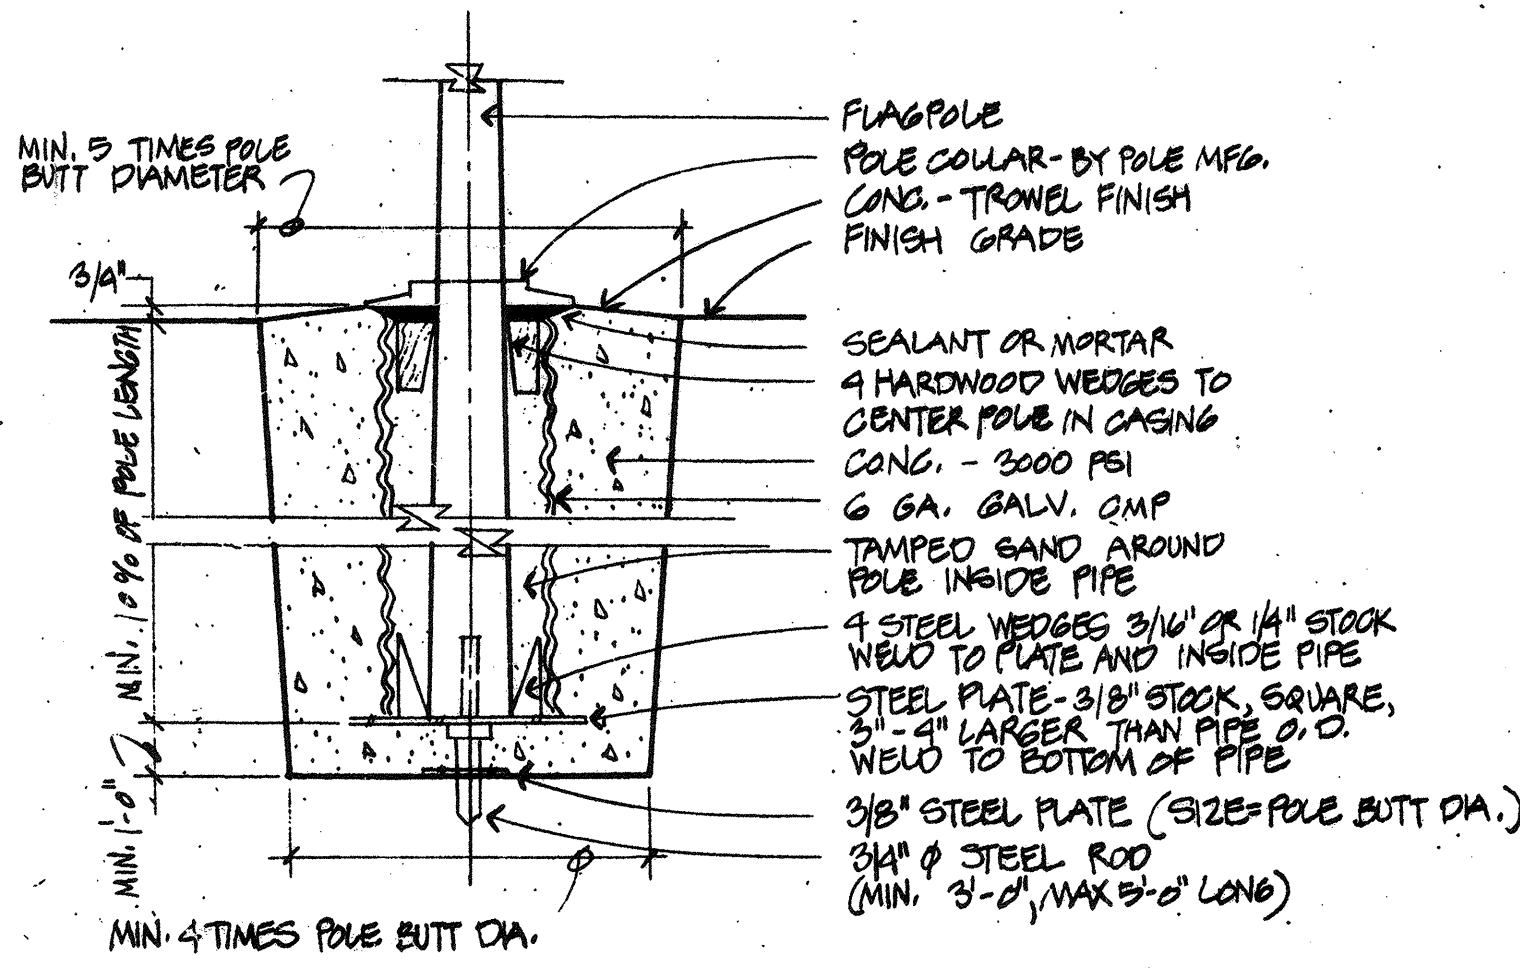 MIN. 5 TIMES POLE
BUTT DIAMETER
3/4"
MIN. 10% OF POLE LENGTH
MIN. 1'-0"
MIN. 4 TIMES POLE BUTT DIA.
FLAGPOLE
POLE COLLAR-BY POLE MFG.
CONC.- TROWEL FINISH
FINISH GRADE
SEALANT OR MORTAR
4 HARDWOOD WEDGES TO
CENTER POLE IN CASING
CONC. - 3000 PSI
6 GA. GALV. CMP
TAMPED SAND AROUND
POLE INSIDE PIPE
4 STEEL WEDGES 3/16" OR 1/4" STOCK
WELD TO PLATE AND INSIDE PIPE
STEEL PLATE-3/8" STOCK, SQUARE,
3"-4" LARGER THAN PIPE O.D.
WELD TO BOTTOM OF PIPE
3/8" STEEL PLATE (SIZE=POLE BUTT DIA.)
3/4" Ø STEEL ROD
(MIN. 3'-0", MAX 5'-0" LONG)